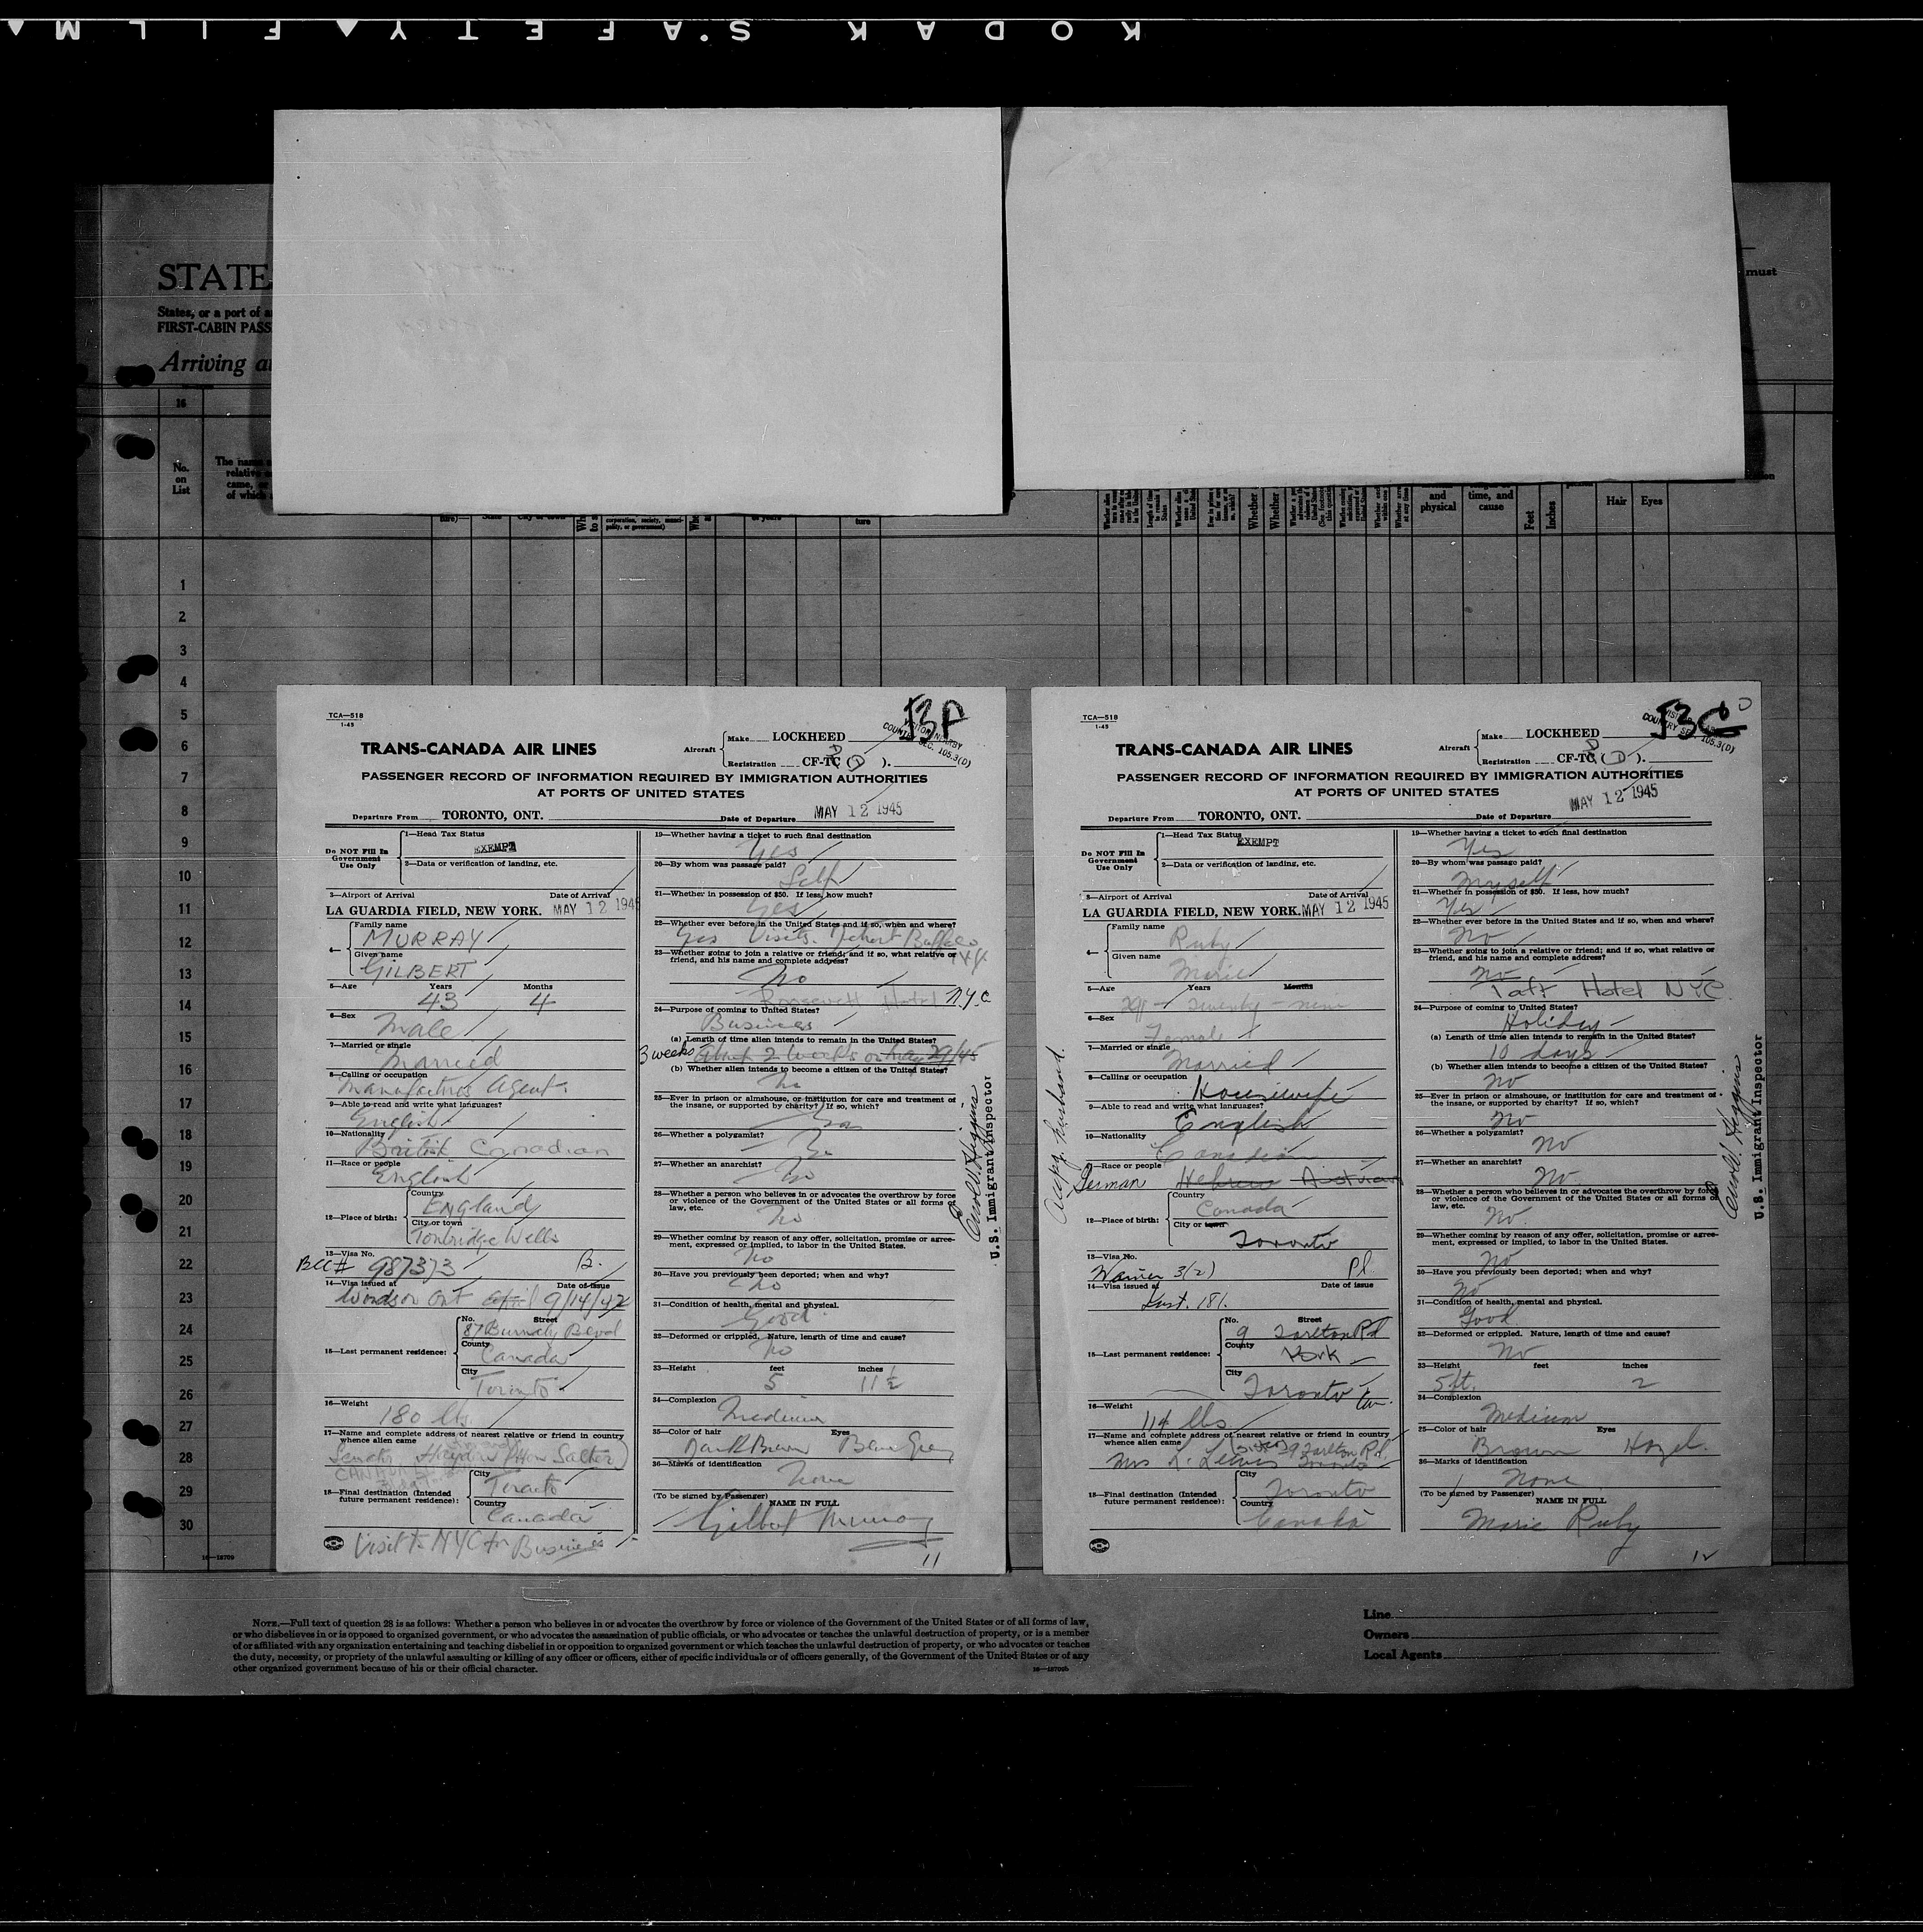 KODAK S'AFETY FILM
STATE
States, or a port of
FIRST-CABIN PASS
Arriving
must
16
No.
on
List
The name
relative
came, or
of which
and
physical
time, and
cause
Feet
Inches
Hair
Eyes
1
2
3
4
5
6
7
8
9
10
11
12
13
14
15
16
17
18
19
20
21
22
23
24
25
26
27
28
29
30
TCA—518
1-45
53A
TRANS-CANADA AIR LINES
Aircraft
Make LOCKHEED
Registration CF-TC (D).
COUNTRY SEC. 105.3(D)
PASSENGER RECORD OF INFORMATION REQUIRED BY IMMIGRATION AUTHORITIES
AT PORTS OF UNITED STATES
Departure From TORONTO, ONT. Date of Departure MAY 12 1945
Do NOT Fill In
Government
Use Only
1—Head Tax Status
EXEMPT
2—Data or verification of landing, etc.
3—Airport of Arrival Date of Arrival
LA GUARDIA FIELD, NEW YORK. MAY 12 1945
4—
Family name
MURRAY
Given name
GILBERT
5—Age Years Months
43 4
6—Sex
Male
7—Married or single
Married
8—Calling or occupation
Manufactures Agent.
9—Able to read and write what languages?
English
10—Nationality
British Canadian
11—Race or people
English
12—Place of birth:
Country
ENGland
City or town
Tonbridge Wells
13—Visa No.
BCC# 987373 B.
14—Visa issued at Date of issue
Windsor Ont 9/14/42
15—Last permanent residence:
No. Street
87 Burnaby Blvd
County
Canada
City
Toronto
16—Weight
180 lbs.
17—Name and complete address of nearest relative or friend in country
whence alien came
Senator Hayden (How Salter)
18—Final destination (Intended
future permanent residence):
City
Toronto
Country
Canada
Visit to NYC for Business
19—Whether having a ticket to such final destination
Yes
20—By whom was passage paid?
Self
21—Whether in possession of $50. If less, how much?
Yes
22—Whether ever before in the United States and if so, when and where?
Yes Visits. Detroit Buffalo
23—Whether going to join a relative or friend; and if so, what relative or
friend, and his name and complete address?
No
Roosevelt Hotel N.Y.C.
24—Purpose of coming to United States?
Business
(a) Length of time alien intends to remain in the United States?
3 weeks About 2 weeks or May 29/45
(b) Whether alien intends to become a citizen of the United States?
No
25—Ever in prison or almshouse, or institution for care and treatment of
the insane, or supported by charity? If so, which?
No
26—Whether a polygamist?
No
27—Whether an anarchist?
No
28—Whether a person who believes in or advocates the overthrow by force
or violence of the Government of the United States or all forms of
law, etc.
No
29—Whether coming by reason of any offer, solicitation, promise or agree-
ment, expressed or implied, to labor in the United States.
No
30—Have you previously been deported; when and why?
No
31—Condition of health, mental and physical.
Good
32—Deformed or crippled. Nature, length of time and cause?
No
33—Height feet inches
5 11½
34—Complexion
Medium
35—Color of hair Eyes
Dark Brown
36—Marks of identification
None
(To be signed by Passenger) NAME IN FULL
Gilbert Murray
11
U.S. Immigrant Inspector
TCA—518
1-45
53C
TRANS-CANADA AIR LINES
Aircraft
Make LOCKHEED
Registration CF-TC (D).
COUNTRY SEC. 105.3(D)
PASSENGER RECORD OF INFORMATION REQUIRED BY IMMIGRATION AUTHORITIES
AT PORTS OF UNITED STATES
Departure From TORONTO, ONT. Date of Departure MAY 12 1945
Do NOT Fill In
Government
Use Only
1—Head Tax Status
EXEMPT
2—Data or verification of landing, etc.
3—Airport of Arrival Date of Arrival
LA GUARDIA FIELD, NEW YORK. MAY 12 1945
4—
Family name
Ruby
Given name
Marie
5—Age Years Months
29 - twenty-nine
6—Sex
Female
7—Married or single
Married
8—Calling or occupation
Housewife
9—Able to read and write what languages?
English
10—Nationality
Canadian
11—Race or people
German Hebrew Austrian
12—Place of birth:
Country
Canada
City or town
Toronto
13—Visa No.
Waiver 3(2) Pl.
14—Visa issued at Date of issue
Inst. 181.
15—Last permanent residence:
No. Street
9 Tarlton Rd
County
York
City
Toronto Can.
16—Weight
114 lbs.
17—Name and complete address of nearest relative or friend in country
whence alien came
Mrs L. Lewis (Sister) 9 Tarlton Rd, Toronto
18—Final destination (Intended
future permanent residence):
City
Toronto
Country
Canada
husband.
19—Whether having a ticket to such final destination
Yes
20—By whom was passage paid?
Myself
21—Whether in possession of $50. If less, how much?
Yes
22—Whether ever before in the United States and if so, when and where?
No
23—Whether going to join a relative or friend; and if so, what relative or
friend, and his name and complete address?
no
Taft Hotel NYC.
24—Purpose of coming to United States?
Holiday
(a) Length of time alien intends to remain in the United States?
10 days
(b) Whether alien intends to become a citizen of the United States?
No
25—Ever in prison or almshouse, or institution for care and treatment of
the insane, or supported by charity? If so, which?
No
26—Whether a polygamist?
No
27—Whether an anarchist?
No.
28—Whether a person who believes in or advocates the overthrow by force
or violence of the Government of the United States or all forms of
law, etc.
No.
29—Whether coming by reason of any offer, solicitation, promise or agree-
ment, expressed or implied, to labor in the United States.
No
30—Have you previously been deported; when and why?
No
31—Condition of health, mental and physical.
Good
32—Deformed or crippled. Nature, length of time and cause?
No
33—Height feet inches
5 ft. 2
34—Complexion
Medium
35—Color of hair Eyes
Brown Hazel.
36—Marks of identification
none
(To be signed by Passenger) NAME IN FULL
Marie Ruby
12
U.S. Immigrant Inspector
16—18709
NOTE.—Full text of question 28 is as follows: Whether a person who believes in or advocates the overthrow by force or violence of the Government of the United States or of all forms of law,
or who disbelieves in or is opposed to organized government, or who advocates the assassination of public officials, or who advocates or teaches the unlawful destruction of property, or is a member
of or affiliated with any organization entertaining and teaching disbelief in or opposition to organized government or which teaches the unlawful destruction of property, or who advocates or teaches
the duty, necessity, or propriety of the unlawful assaulting or killing of any officer or officers, either of specific individuals or of officers generally, of the Government of the United States or of any
other organized government because of his or their official character.
Line
Owners
Local Agents